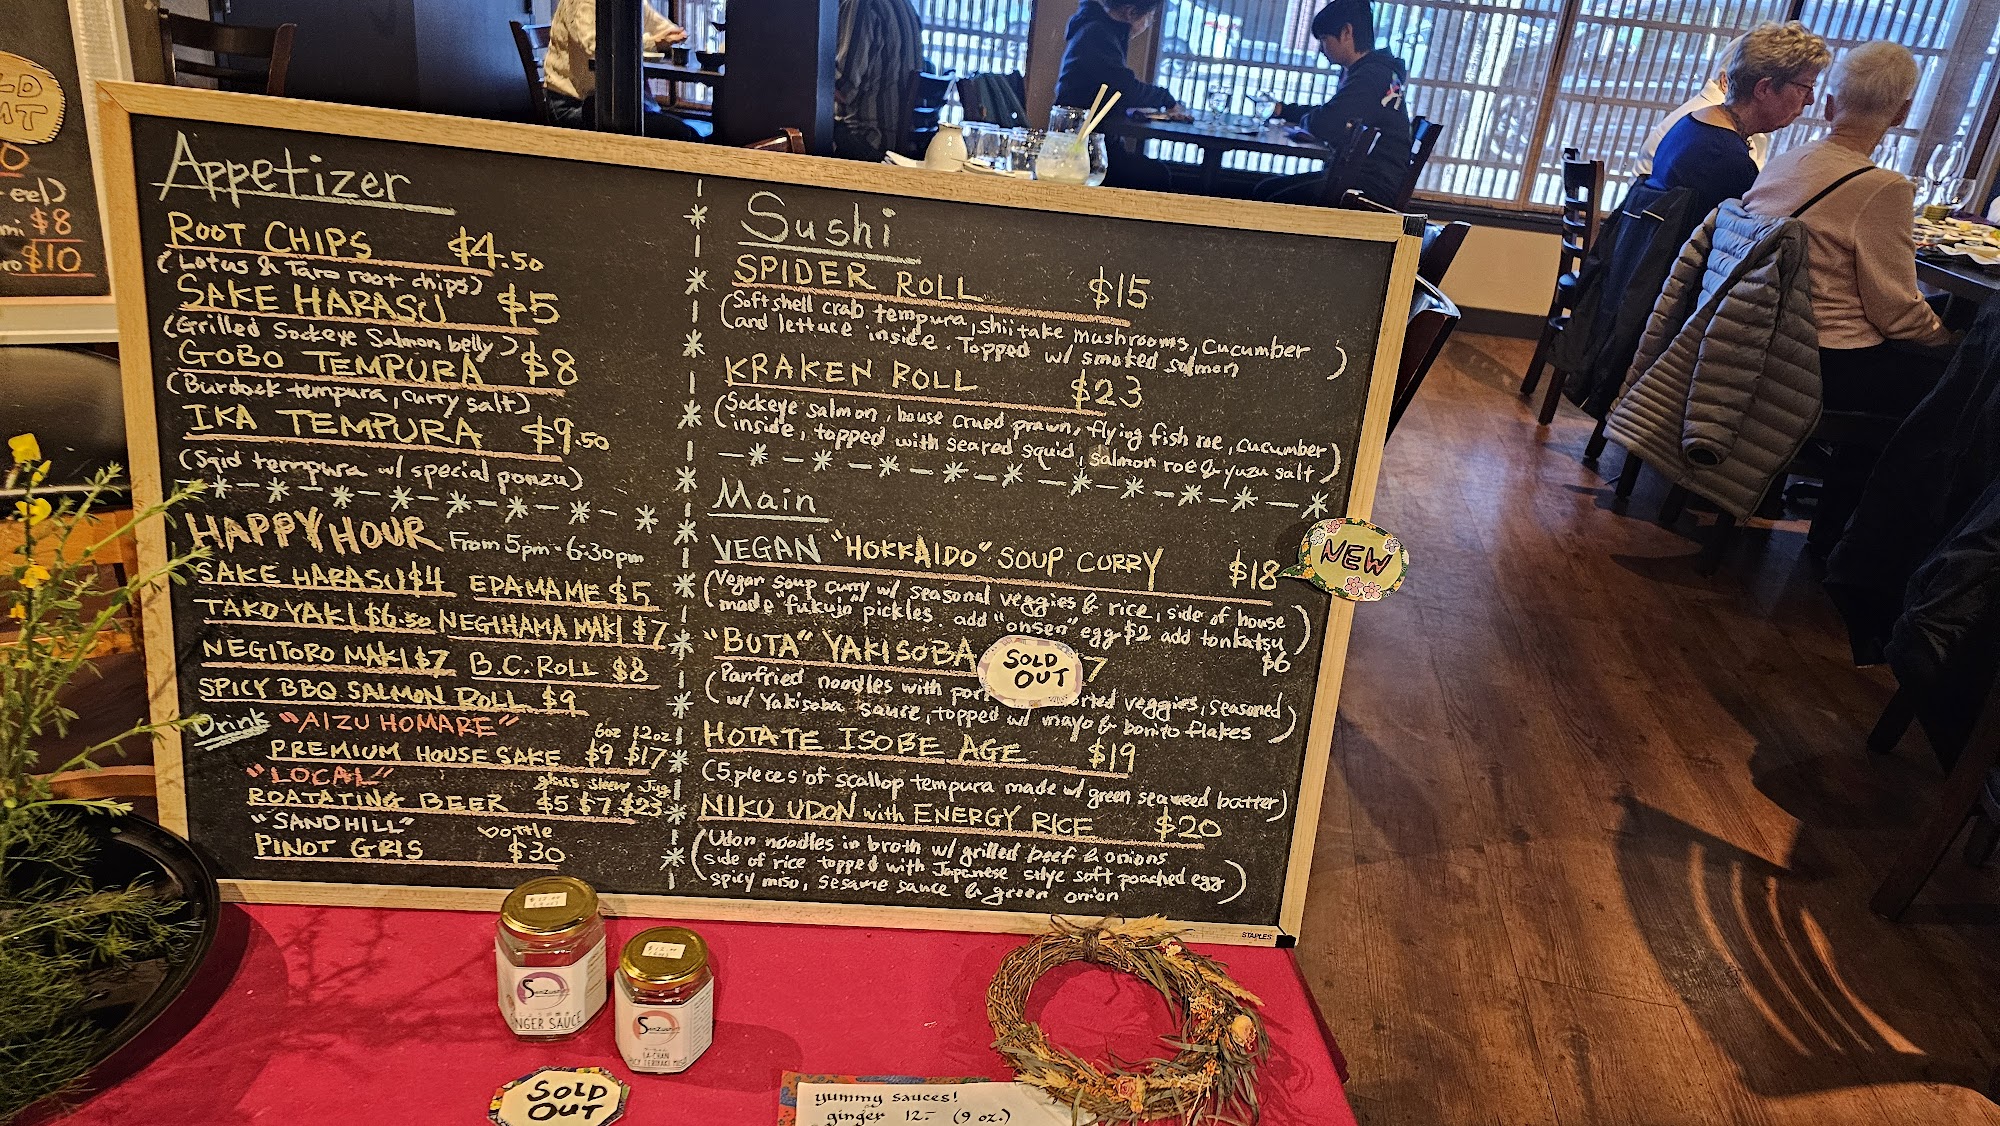 LD
MT
0
eel)
mi $8
ro $10
Appetizer
ROOT CHIPS $4.50
(Lotus & Taro root chips)
SAKE HARASU $5
(Grilled Sockeye Salmon belly)
GOBO TEMPURA $8
(Burdock tempura, curry salt)
IKA TEMPURA $9.50
(Sqid tempura w/ special ponzu)
HAPPY HOUR From 5pm-6:30pm
SAKE HARASU $4 EDAMAME $5
TAKOYAKI $6.50 NEGIHAMA MAKI $7
NEGITORO MAKI $7 B.C. ROLL $8
SPICY BBQ SALMON ROLL $9
Drink "AIZU HOMARE"
6oz 12oz
PREMIUM HOUSE SAKE $9 $17
"LOCAL"
glass sleeve Jug
ROATATING BEER $5 $7 $23
"SANDHILL" bottle
PINOT GRIS $30
Sushi
SPIDER ROLL $15
(Softshell crab tempura, shiitake mushrooms, cucumber
and lettuce inside. Topped w/ smoked salmon)
KRAKEN ROLL $23
(Sockeye salmon, house cured prawn, flying fish roe, cucumber
inside, topped with seared squid, salmon roe & yuzu salt)
Main
VEGAN "HOKKAIDO" SOUP CURRY $18
NEW
(Vegan soup curry w/ seasonal veggies & rice, side of house
made "fukujin" pickles. add "onsen" egg $2 add tonkatsu
$6)
"BUTA" YAKISOBA 7
SOLD
OUT
(Panfried noodles with por orted veggies, seasoned
w/ Yakisoba sauce, topped w/ mayo & bonito flakes)
HOTATE ISOBE AGE $19
(5 pieces of scallop tempura made w/ green seaweed batter)
NIKU UDON with ENERGY RICE $20
(Udon noodles in broth w/ grilled beef & onions
side of rice topped with Japanese stlye soft poached egg
spicy miso, sesame sauce & green onion)
STAPLES
GINGER SAUCE
SOLD
OUT
yummy sauces!
ginger 12.- (9 oz.)